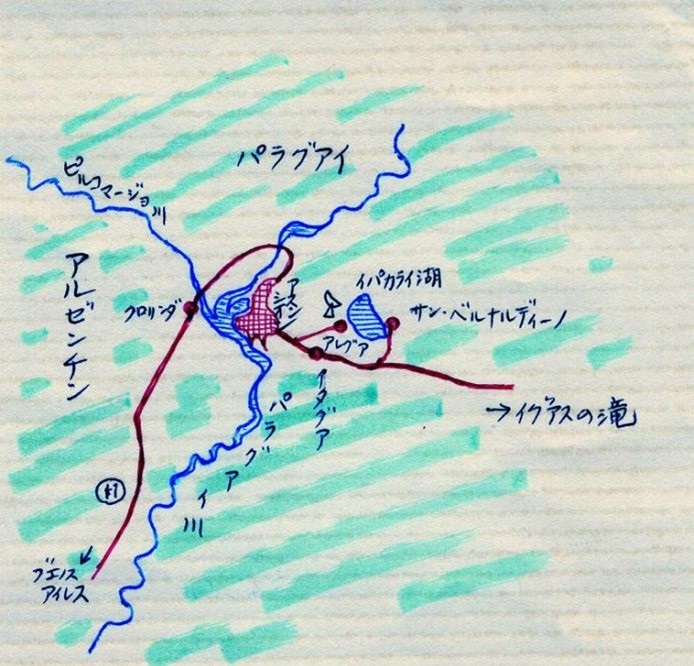 パラグアイ
ピルコマージョ川
アルゼンチン
クロリンダ
アスンシオン
イパカライ湖
サン・ベルナルディーノ
アレグア
イタグア
→イグアスの滝
パラグアイ川
11
ブエノス
アイレス